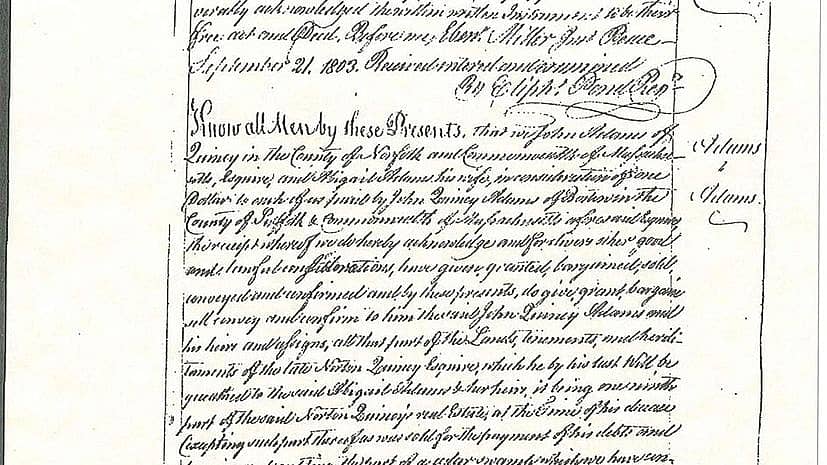 verally acknowledged the within written Instrument to be their
free act and Deed, Before me, Eben. Miller Just Peace
September 21. 1803. Received entered and examined
By Eliph. Pond Reg.
Know all Men by these Presents, that we John Adams of
Quincy in the County of Norfolk and Commonwealth of Massachu-
setts, Esquire, and Abigail Adams his wife, in consideration of one
Dollar to each of us paid by John Quincy Adams of Boston in the
County of Suffolk & Commonwealth of Massachusetts aforesaid Esquire,
the receipt whereof we do hereby acknowledge and for divers other good
and lawful considerations, have given, granted, bargained, sold,
conveyed and confirmed and by these presents, do give, grant, bargain
sell convey and confirm to him the said John Quincy Adams and
his heirs and assigns, all that part of the Lands, tenements, and heredi-
taments of the late Norton Quincy Esquire, which he by his last Will be
queathed to the said Abigail Adams & her heirs, it being one ninth
part of the said Norton Quincy's real Estate, at the Time of his decease
excepting such part thereof as was sold for the payment of his debts and
part of a cedar swamp which we have
Adams
&
Adams.